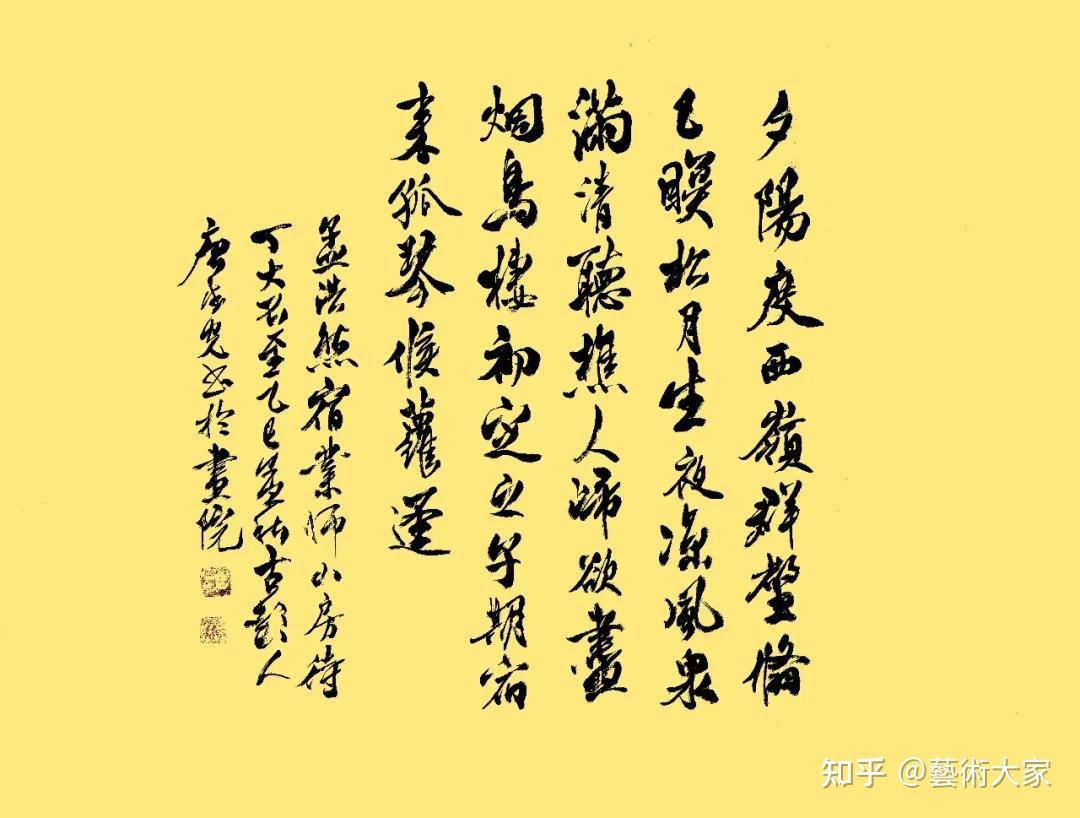 夕陽度西嶺群壑倏
已暝松月生夜涼風泉
滿清聽樵人歸欲盡
烟鳥棲初定之子期宿
來孤琴候蘿逕
孟浩然宿業師山房待
丁大不至乙巳孟秋古彭人
唐光书於畫院
知乎 @藝術大家